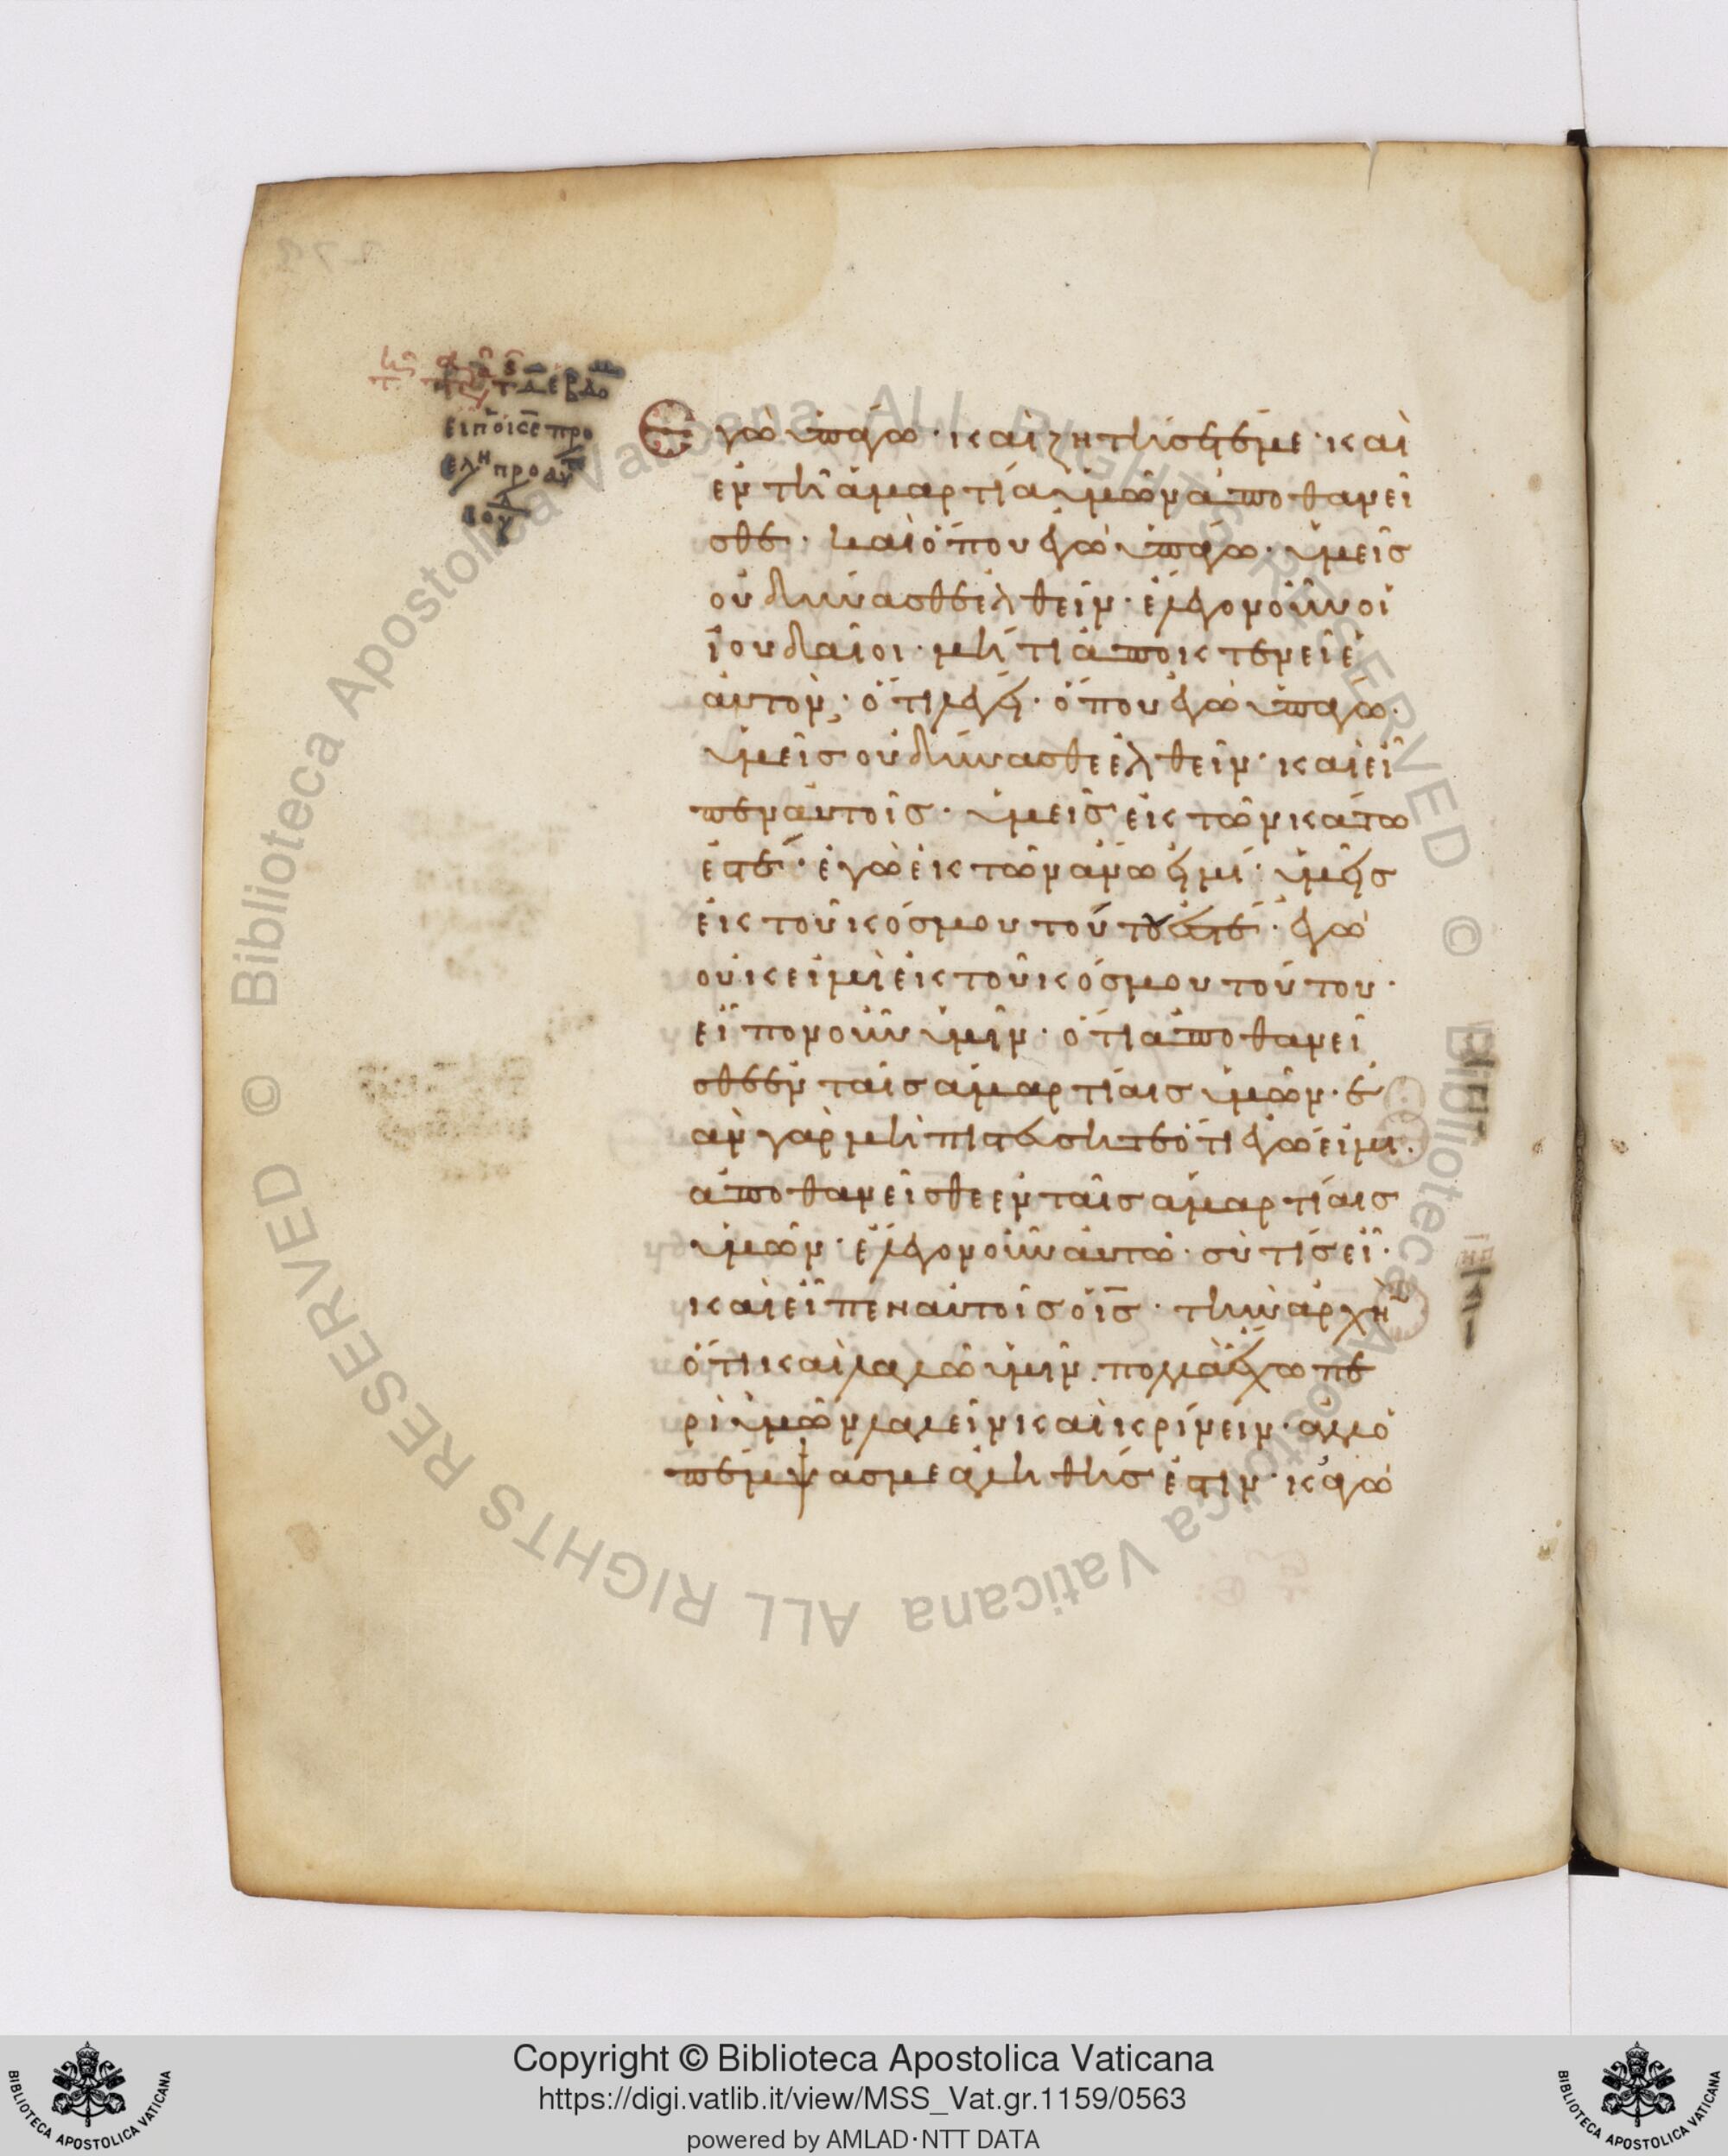 Ἐγὼ ὑπάγω · καὶ ζητήσετέ με · καὶ
ἐν τῆ ἁμαρτία ὑμῶν ἀποθανεῖ
σθε · καὶ ὅπου ἐγὼ ὑπάγω · ὑμεῖς
οὐ δύνασθε ἐλθεῖν · ἔλεγον οὖν οἱ
ἰουδαῖοι · μήτι ἀποκτενεῖ ἑ
αὐτόν · ὅτι λέγει · ὅπου ἐγὼ ὑπάγω ·
ὑμεῖς οὐ δύνασθε ἐλθεῖν · καὶ εἶ
πεν αὐτοῖς · ὑμεῖς ἐκ τῶν κάτω
ἐστέ · ἐγὼ ἐκ τῶν ἄνω εἰμί · ὑμεῖς
ἐκ τοῦ κόσμου τούτου ἐστέ · ἐγὼ
οὐκ εἰμὶ ἐκ τοῦ κόσμου τούτου ·
εἶπον οὖν ὑμῖν · ὅτι ἀποθανεῖ
σθε ἐν ταῖς ἁμαρτίαις ὑμῶν · ἐ
ὰν γὰρ μὴ πιστεύσητε ὅτι ἐγώ εἰμι ·
ἀποθανεῖσθε ἐν ταῖς ἁμαρτίαις
ὑμῶν · ἔλεγον οὖν αὐτῶ · σὺ τίς εἶ ·
καὶ εἶπεν αὐτοῖς ὁ ἰς · τὴν ἀρχὴν
ὅτι καὶ λαλῶ ὑμῖν · πολλὰ ἔχω πε
ρὶ ὑμῶν λαλεῖν καὶ κρίνειν · ἀλλ' ὁ
πέμψας με ἀληθής ἐστιν · κἀγὼ
Copyright © Biblioteca Apostolica Vaticana
https://digi.vatlib.it/view/MSS_Vat.gr.1159/0563
powered by AMLAD·NTT DATA
BIBLIOTECA APOSTOLICA VATICANA
BIBLIOTECA APOSTOLICA VATICANA
© Biblioteca Apostolica Vaticana ALL RIGHTS RESERVED
© Biblioteca Apostolica Vaticana ALL RIGHTS RESERVED